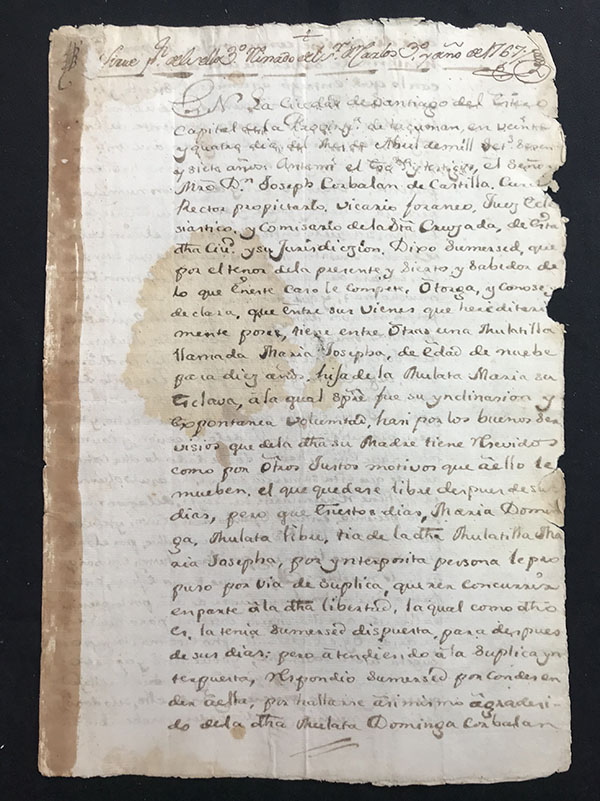 Sirve pa. del sello 3o. Reinado del Sr. D. Carlos 3o. y año de 1767.
EN La Ciudad de Santiago del Estero
Capital de la Provinza. de tucuman, en veinte
y quatro dias del Mes de Abril de mill setts. sesen
y siete años Antemi el Esno. y testigos, el Señor
Mro. Dn. Joseph Corbalan de Castilla, Cura
Rector propietario, Vicario foraneo, Juez Ecle
siastico, y Comisario de la Sta. Cruzada, de Esta
dha Ciud. y su Jurisdiczion. Dijo Sumersed, que
por el tenor dela presente y sierto, y Sabidor de
lo que Eneste caso le Compete, Otorga, y Conose
declara, que entre sus vienes que hereditaria
mente posee, tiene entre Otras una Mulatilla
llamada Maria Josepha, de Edad de nuebe
para diez años, hija de la Mulata Maria su
Esclava, â la qual spre. fue su ynclinasion y
Expontanea Voluntad, hasi por los buenos Ser
visios que dela dha su Madre tiene Resevidos
como por Otros Justos motivos que â ello le
mueben, el que quedase libre despues de sus
dias, pero que Enestos dias, Maria Domin
ga, Mulata libre, tia de la dha Mulatilla Ma
ria Josepha, por ynterposita persona le pro
puso por via de Suplica, querer Concurrir
en parte â la dha libertad, la qual como dho
es, la tenia Sumersed dispuesta, para despues
de sus dias; pero atendiendo â la Suplica yn
terpuesta, Respondio Sumersed por Condesen
der â ella, por hallarse asimismo agradesi-
do dela dha Mulata Dominga Corbalan